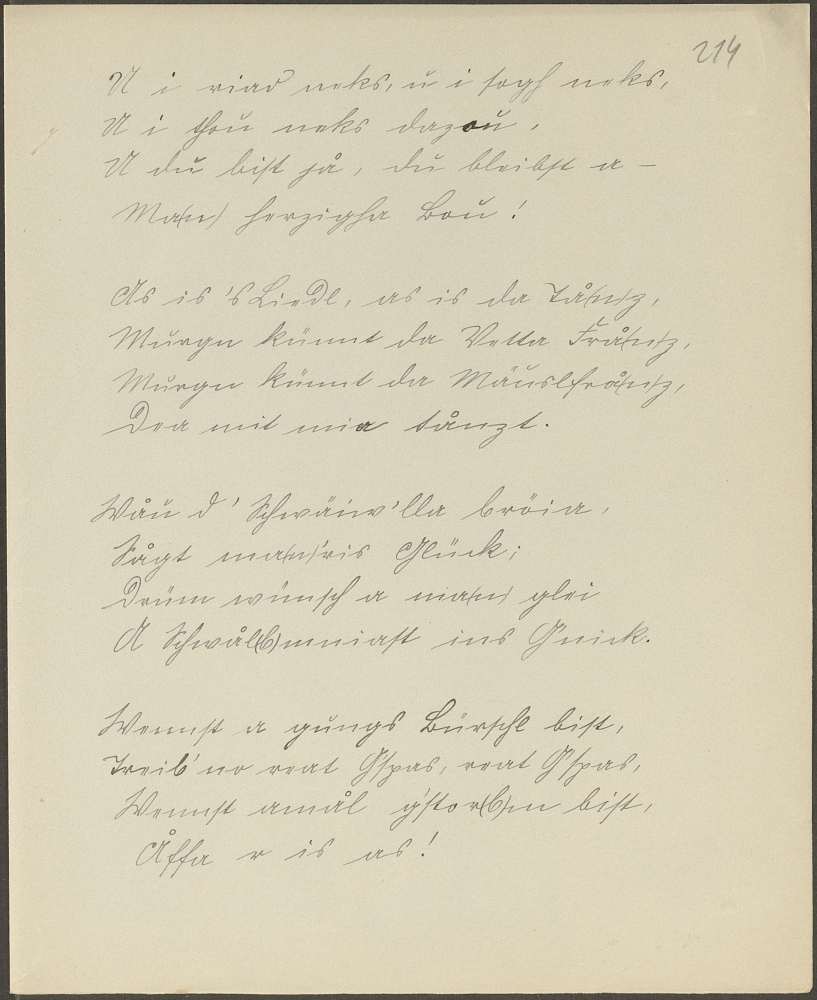 214
U i riad neks, u i sogh neks,
U i thou neks dazou,
U du bist jå, du bleibst a –
Ma(n) herzigha Bou!
As is 's Liedl, as is da Tå(n)z,
Murgn kümmt da Vetta Frå(n)z,
Murgn kümmt da Mäuslfrå(n)z,
Dea mit mia tånzt.
Wåu d' Schwäiw'lla bröia,
Sågt ma(n)'ris Glück;
Drum wünsch a ma(n) glei
A Schwål(b)mniast ins G'nick.
Wennst a gungs Bürschl bist,
Treib' no reat G'spas, reat G'spas,
Wennst amål g'stor(b)m bist,
Åffa r is as!